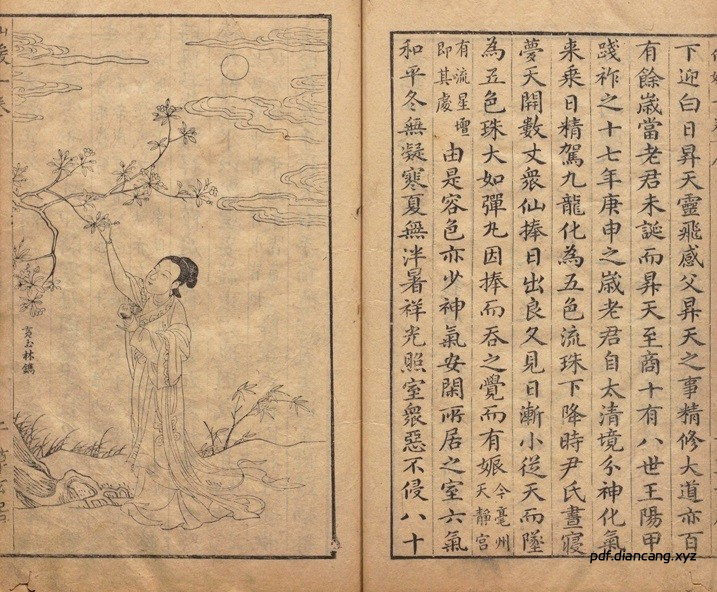 下迎白日昇天靈飛感父昇天之事精修大道亦百
有餘歲當老君未誕而昇天至商十有八世王陽甲
踐祚之十七年庚申之歲老君自太清境分神化氣
来乘日精駕九龍化為五色流珠下降時尹氏晝寢
夢天開數丈衆仙捧日出良久見日漸小從天而墜
為五色珠大如彈丸因捧而吞之覺而有娠今亳州天靜宮
有流星壇即其處由是容色亦少神氣安閑所居之室六氣
和平冬無凝寒夏無泮暑祥光照室衆惡不侵八十
黃玉林鐫
pdf.diancang.xyz